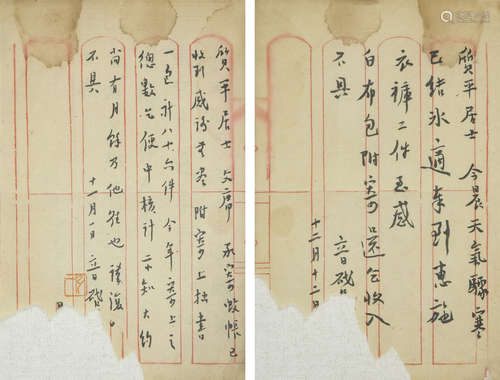 質平居士 今晨天氣驟寒
已結冰 適奉到惠施
衣褲二件至感
白布包附寄還乞收入
不具 音啟
十二月十二日
質平居士文席 承寄蚊帳已
收到感謝無盡附寄上拙書
一包計八十六件今年寄上之
總數乞便中核計示知大約
尚有月餘乃他往也 謹復
不具 十一月一日 音啟